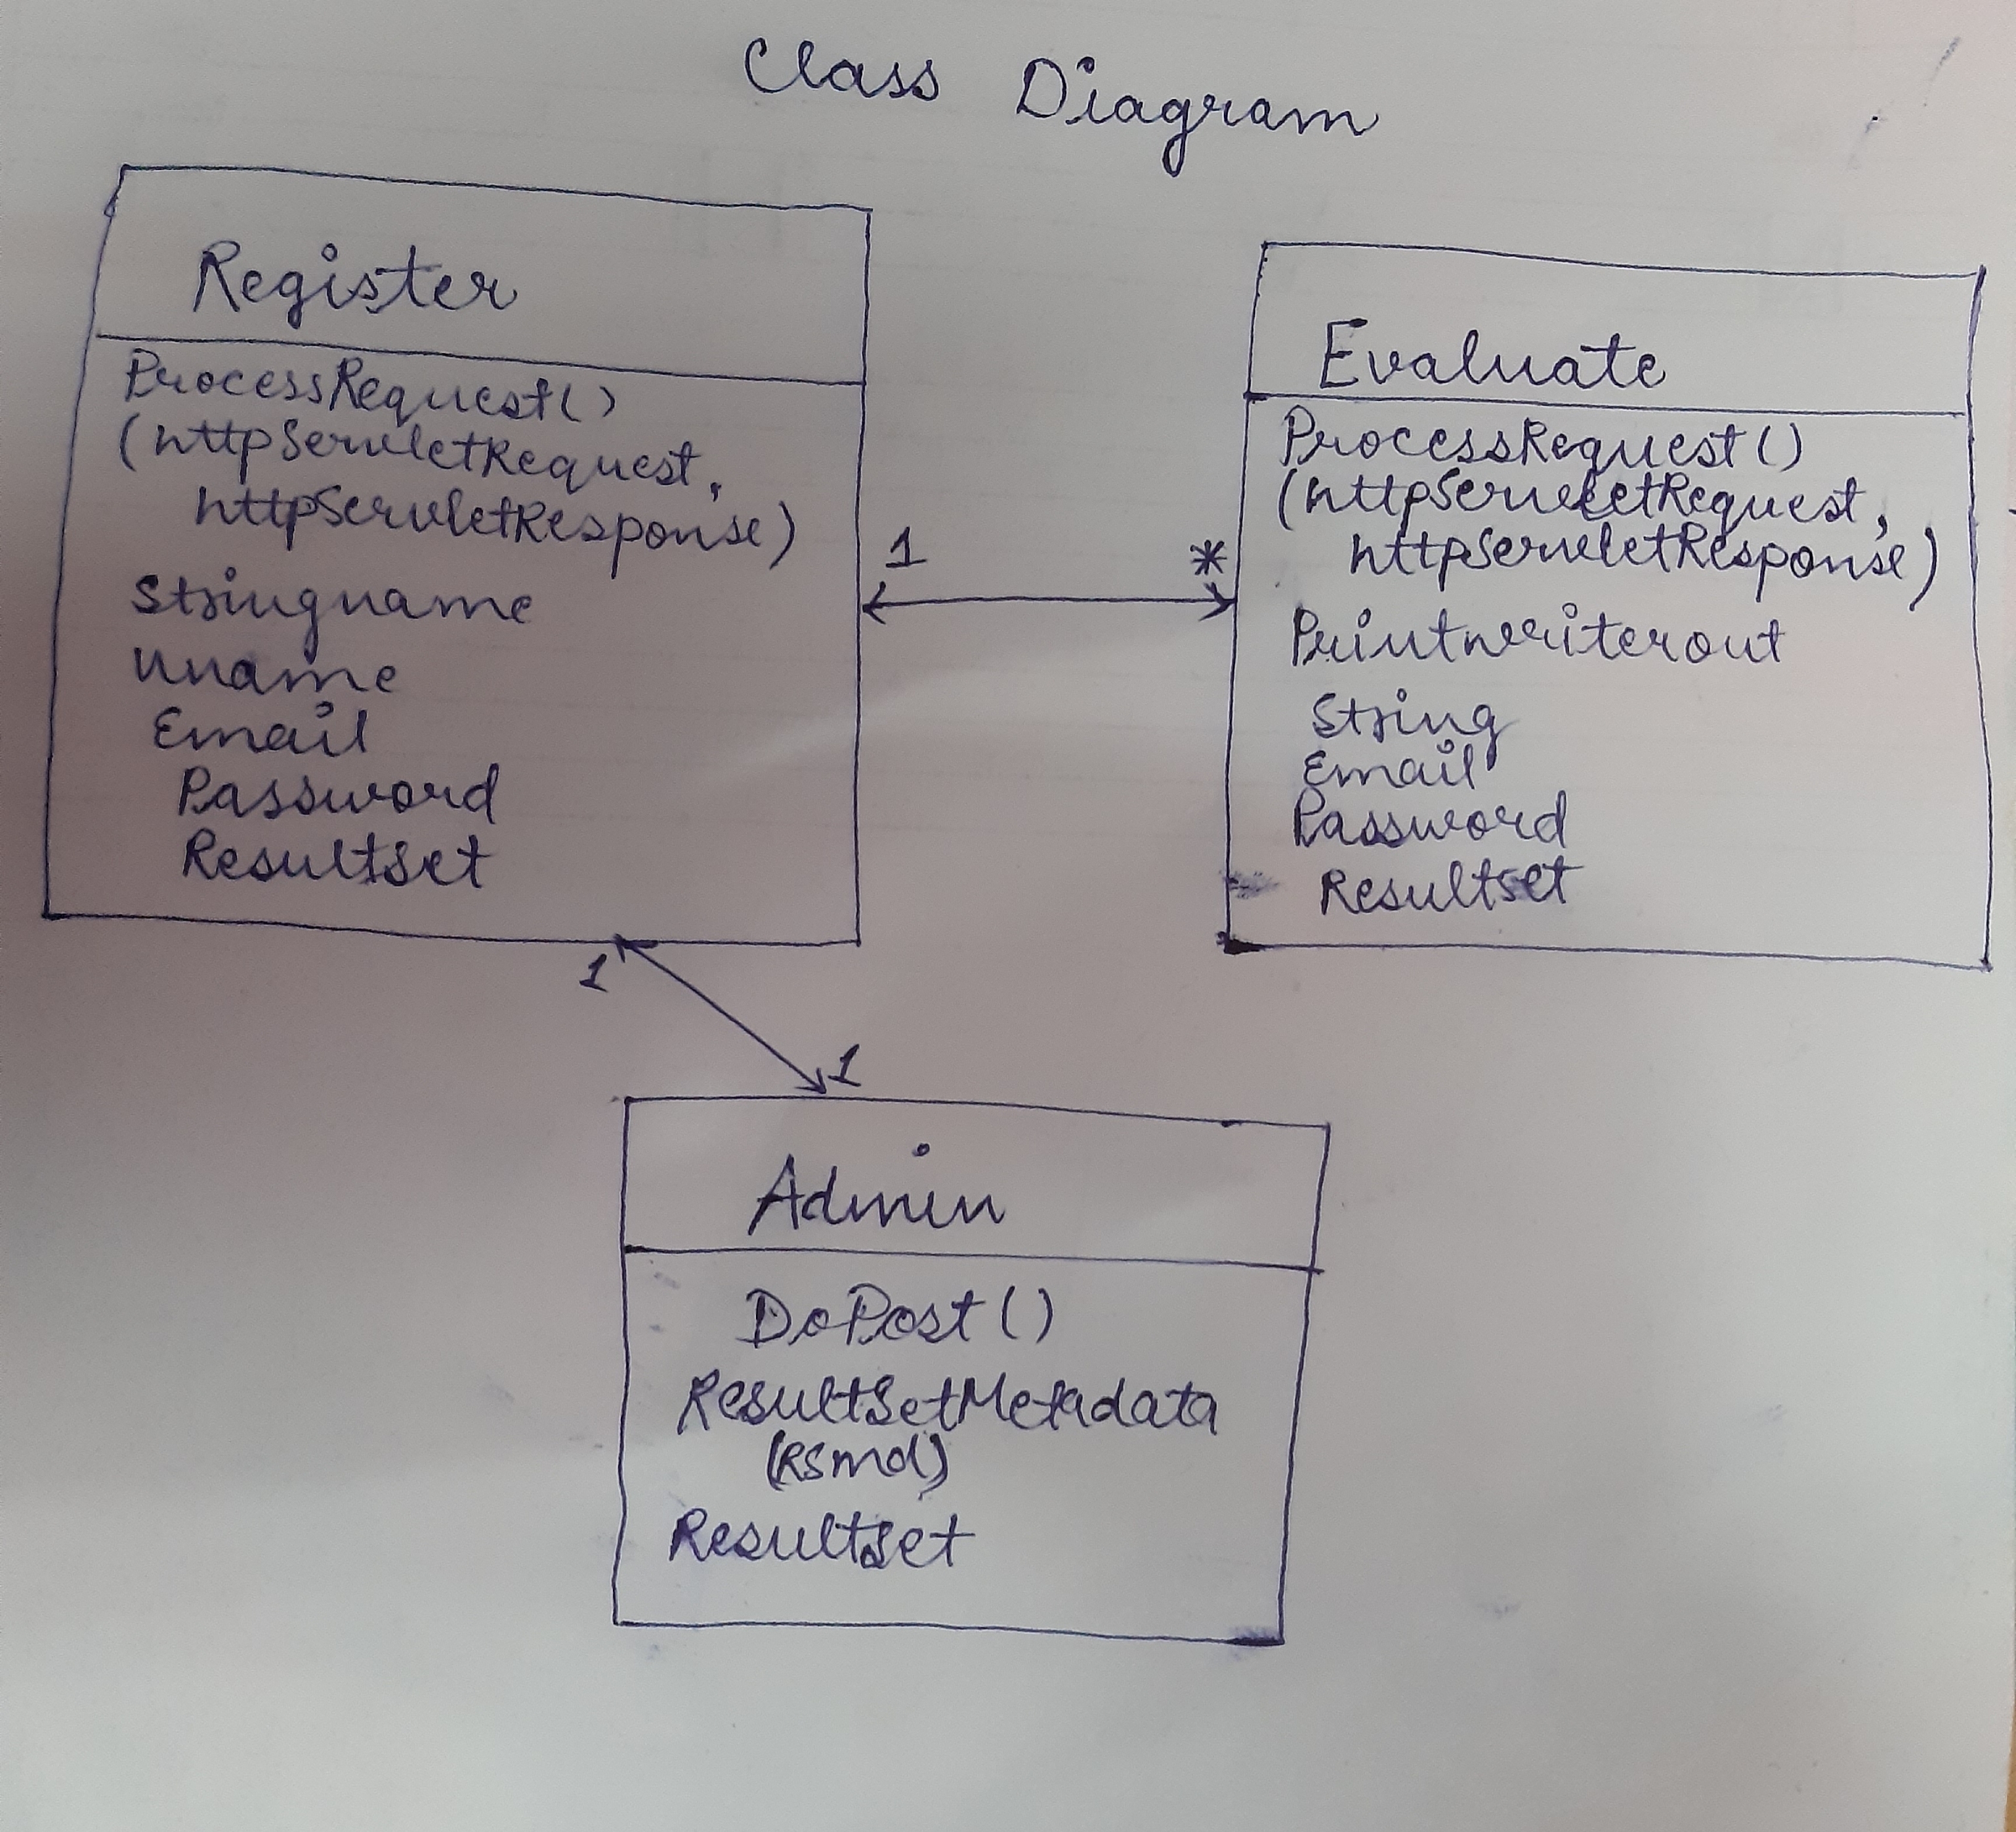 Class Diagram
Register
ProcessRequest()
(httpServletRequest,
httpServletResponse)
Stringname
Uname
Email
Password
Resultset
1
*
Evaluate
ProcessRequest()
(httpServletRequest,
httpServletResponse)
Printwriterout
String
Email
Password
Resultset
1
1
Admin
DoPost()
ResultSetMetadata
(RSmd)
Resultset